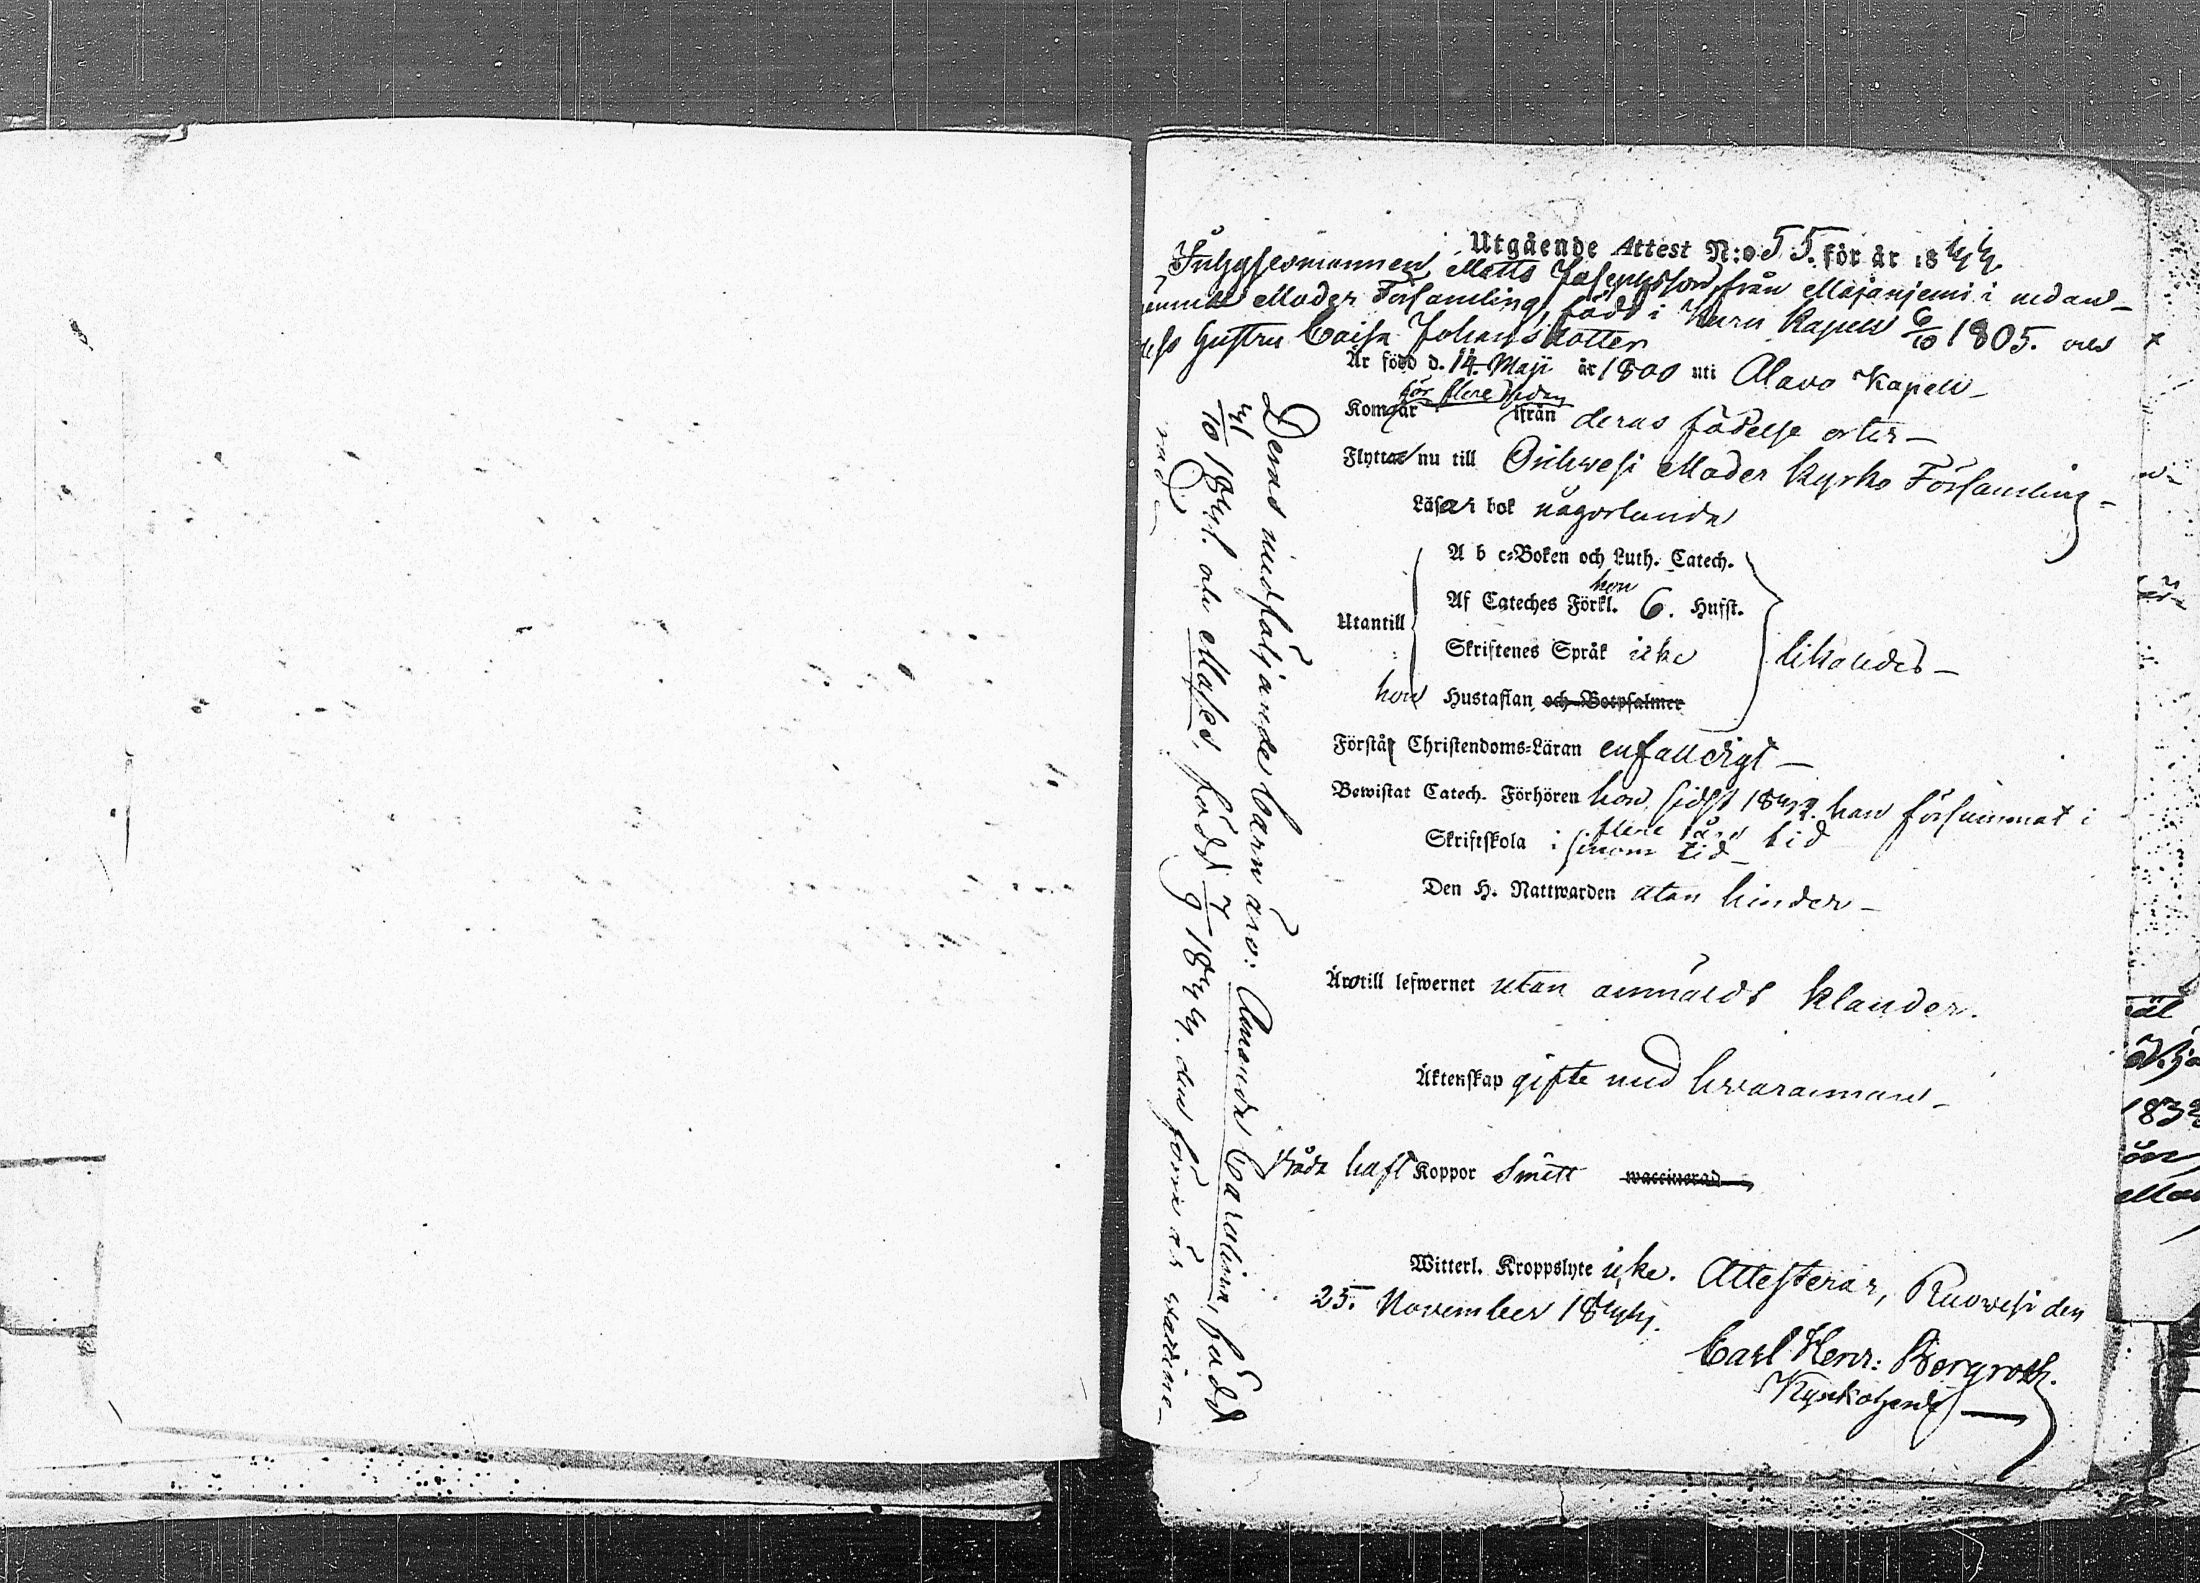 Utgående Attest N:o 55. för år 1844.
Inhysesmannen Matts Josephsson, från Majanjemi i nedan-
Moder Församling, född i Kuru Kapell 6/10 1805. och
hustru Caisa Johansdotter
Är född d. 14. Maji år 1800 uti Alavo Kapell
för flere sedan
Kom år ifrån deras födelse orter
Flytta nu till Orihwesi Moder kyrko Församling
Läsa i bok någorlunda
A b c-Boken och Luth. Catech.
hon
Af Cateches Förkl. 6. Hufst.
Utantill
Skriftenes Språk icke likaledes
hon Hustaflan och Botpsalmer
Förstå Christendoms-Läran enfaldigt
Bewistat Catech. Förhören hon sidst 1842. han försummat i
flere års tid
Skriftskola i sinom tid
Den H. Nattwarden utan hinder
Äro till lefwernet utan anmäldt klander.
Äktenskap gifte med hvarannan
Båda haft Koppor Smitt waccinerad
Witterl. Kroppslyte icke. Attesterar, Ruovesi den
25. November 1844.
Carl Henr: Bergroth.
Kyrkoherde
Deras medföljande barn äro: Amanda Carolina, född
4/10 1841. och Moses, född 7/9 1844. den förra är vaccine-
rad